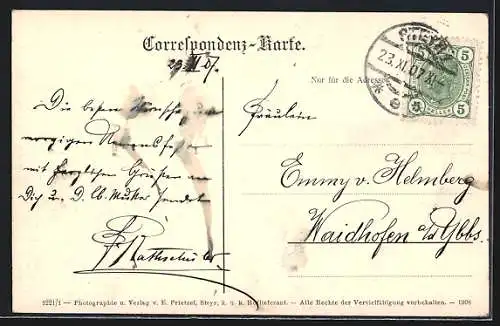 Correspondenz-Karte.
23. XI. 07.
Nur für die Adresse
STEYR
23.XI.07
5 5
5 5
Die besten Wünsche zum
morgigen Namensfeste
mit herzlichen Grüßen an
Dich u. D. lb. Mutter sendet
Fräulein
Emmy v. Helmberg
Waidhofen a/d Ybbs.
2221/1 — Photographie u. Verlag v. E. Prietzel, Steyr, k. u. k. Hoflieferant. — Alle Rechte der Vervielfältigung vorbehalten. — 1908